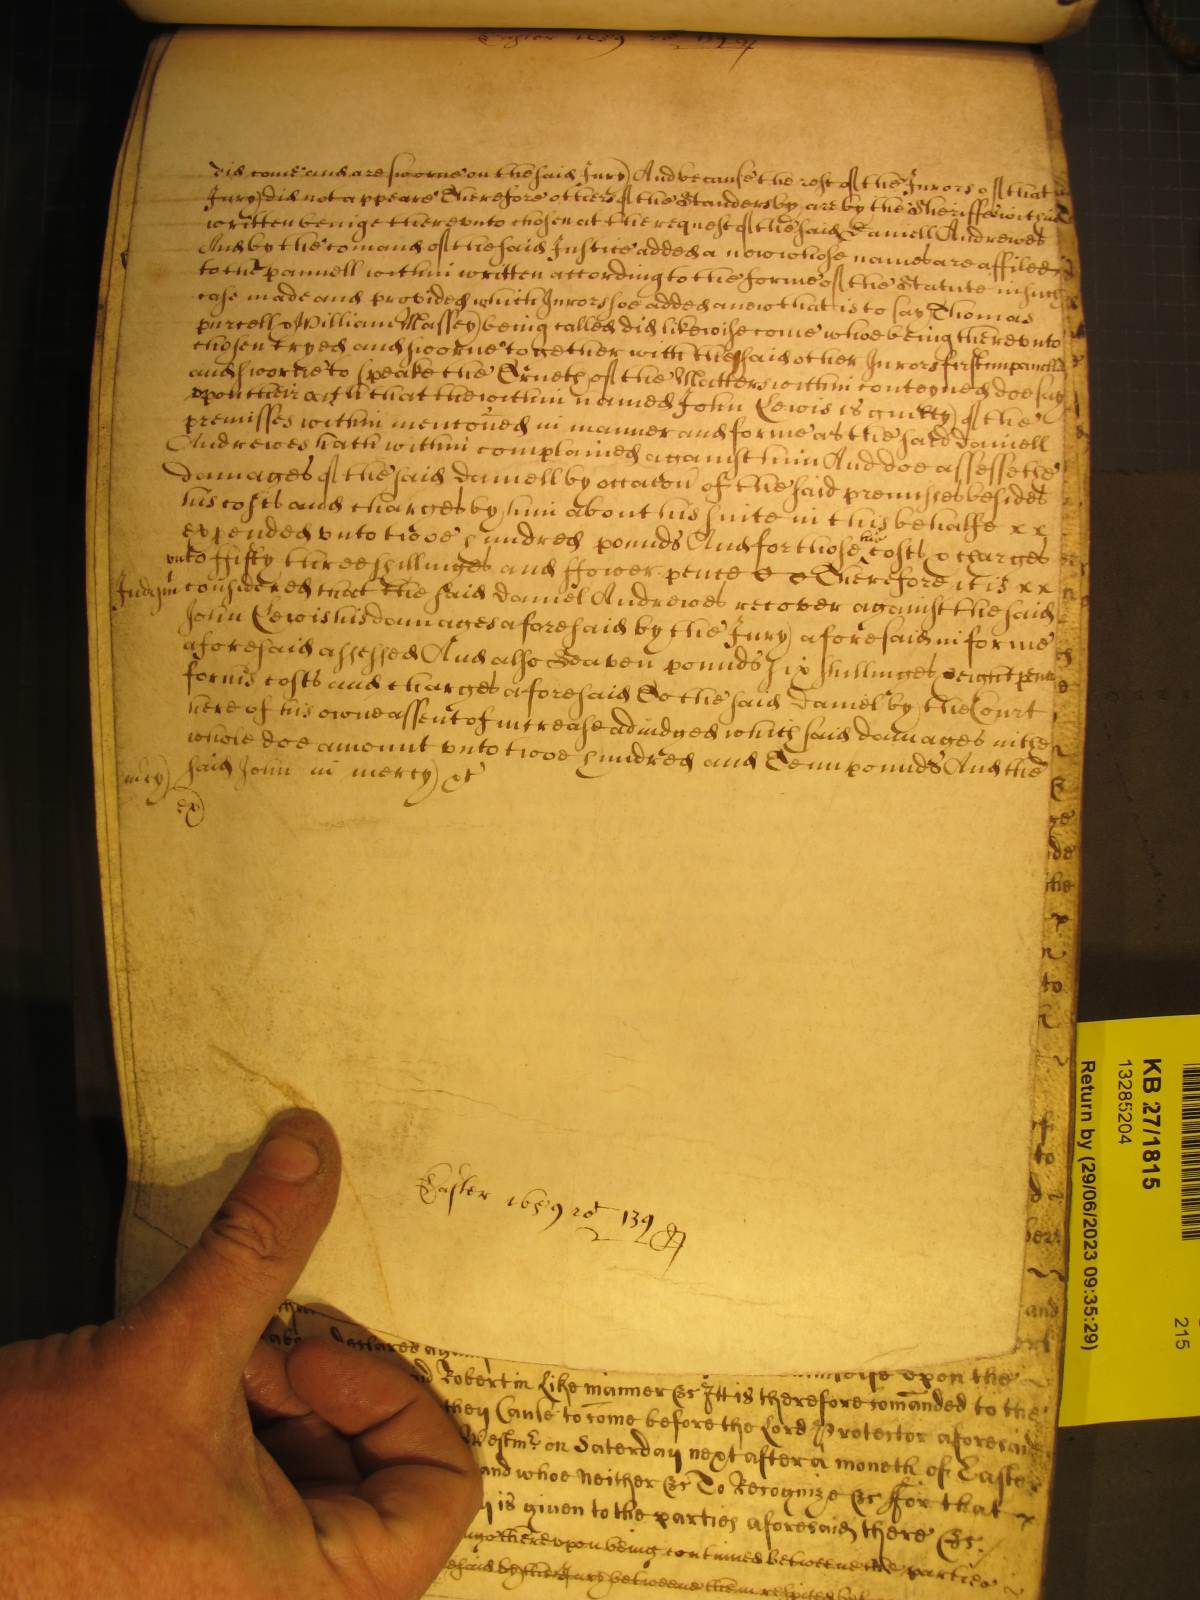 Easter 1659 ro 139
did come and are sworne on the said Jury And because the rest of the Jurors of that
Jury did not appeare Therefore others of the Standersby are by the Sheriffe within
written beinge therevnto chosen at the request of the said Daniell Andrewes
And by the comand of the said Justice added a new whose names are affiled
to the pannell within written according to the forme of the Statute in such
case made and provided which Jurors soe added anew that is to say Thomas
purcell & William Massey being called did likewise come whoe being therevnto
chosen tryed and sworne together with the said other Jurors first impanelled
and sworne to speake the Trueth of the Matters within conteyned doe say
vpon their oath that the within named John Lewis is guilty of the
premisses within menconed in manner and forme as the said Daniell
Andrewes hath within complained against him And doe assesse the
damages of the said Daniell by occacon of the said premisses besides
his costs and charges by him about his suite in this behalfe x x
expended vnto twoe hundred pounds And for those his costs & charges
vnto ffifty three shillinges and ffower pence Therefore it is x x
Judgm considered that the said Daniel Andrewes recover against the said
John Lewis his damages aforesaid by the Jury aforesaid in forme
aforesaid assessed And also Seaven pounds six shillinges eight pence
for his costs and charges aforesaid To the said Daniel by the Court
here of his owne assent of increase adiudged which said damages in the
whole doe amount vnto twoe hundred and Tenn pounds And the
mcy said John in mercy &c
ex
Easter 1659 ro 139
declares
Robert in like manner &c Itt is therefore comanded to the
they Cause to come before the Lord Protector aforesaid
Westmr on Saterday next after a moneth of Easter
and whoe neither &c To Recognize &c ffor that
is given to the parties aforesaid there &c
therevpon being continued betweene the parties
by the Jury betweene them respited
KB 27/1815
13285204
Return by (29/06/2023 09:35:29)
215